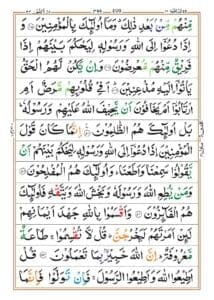 مِّنْهُمْ مِّنْۢ بَعْدِ ذٰلِكَ ؕ وَمَاۤ اُولٰٓئِكَ بِالْمُؤْمِنِيْنَ
وَاِذَا دُعُوْۤا اِلَى اللّٰهِ وَرَسُوْلِهٖ لِيَحْكُمَ بَيْنَهُمْ اِذَا
فَرِيْقٌ مِّنْهُمْ مُّعْرِضُوْنَ وَاِنْ يَّكُنْ لَّهُمُ الْحَقُّ
يَاْتُوْۤا اِلَيْهِ مُذْعِنِيْنَ اَفِيْ قُلُوْبِهِمْ مَّرَضٌ اَمِ
ارْتَابُوْۤا اَمْ يَخَافُوْنَ اَنْ يَّحِيْفَ اللّٰهُ عَلَيْهِمْ وَرَسُوْلُهٗ
بَلْ اُولٰٓئِكَ هُمُ الظّٰلِمُوْنَ اِنَّمَا كَانَ قَوْلَ
الْمُؤْمِنِيْنَ اِذَا دُعُوْۤا اِلَى اللّٰهِ وَرَسُوْلِهٖ لِيَحْكُمَ بَيْنَهُمْ اَنْ
يَّقُوْلُوْا سَمِعْنَا وَاَطَعْنَا وَاُولٰٓئِكَ هُمُ الْمُفْلِحُوْنَ
وَمَنْ يُّطِعِ اللّٰهَ وَرَسُوْلَهٗ وَيَخْشَ اللّٰهَ وَيَتَّقْهِ فَاُولٰٓئِكَ
هُمُ الْفَآئِزُوْنَ وَاَقْسَمُوْا بِاللّٰهِ جَهْدَ اَيْمَانِهِمْ
لَئِنْ اَمَرْتَهُمْ لَيَخْرُجُنَّ قُلْ لَّا تُقْسِمُوْا طَاعَةٌ
مَّعْرُوْفَةٌ اِنَّ اللّٰهَ خَبِيْرٌۢ بِمَا تَعْمَلُوْنَ قُلْ
اَطِيْعُوا اللّٰهَ وَاَطِيْعُوا الرَّسُوْلَ فَاِنْ تَوَلَّوْا فَاِنَّمَا